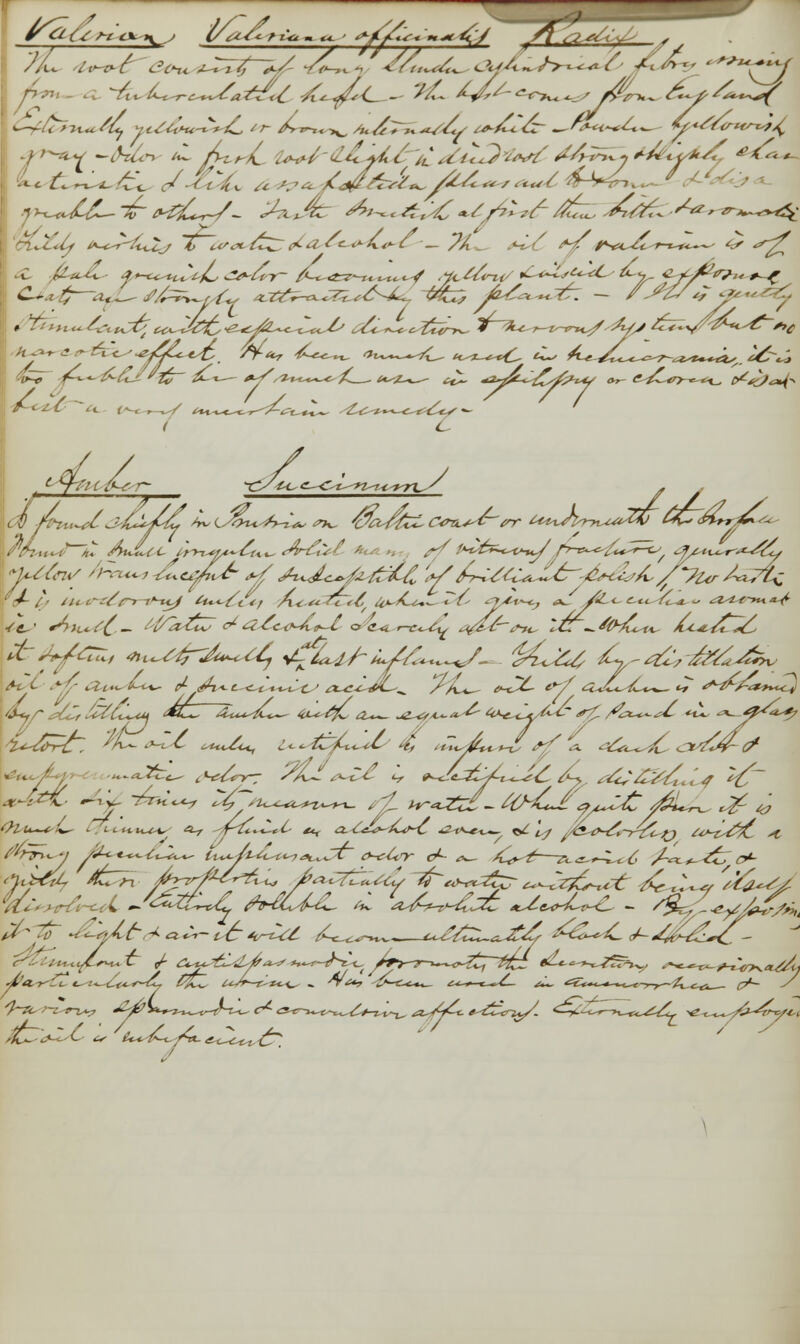 Valerian Valeriana officinalis Radix.
The root consists of long slender cylindrical fibres issuing
from a tuberculated head - The best comes from England
Externally yellowish or brown internally white - Powder yellowish
gray - Odor in fresh root slight, in dried root strong & highly char-
acteristic & like assafoetida pleasant to some & disa-
greeable to others - Taste sweetish at first then bitter & aromatic
Yields virtues to water & alcohol - The oil of valerian is of
a pale greenish color becoming yellow & viscid by exposure
Cats are strongly attracted by this plant. - It is gently
stimulant, with especial direction to nervous system, but no
narcotic effect. Has been much used in hemicrania, it is
too feeble to be of much use in epilepsy or chorea & is at
best a very uncertain remedy -
Amber Succinum
Is found chiefly in Prussia on Baltic coast or underneath the surface
Found in small irregular solid mass of vitreous fracture, generally
yellow translucent & susceptible of brilliant polish. No taste
& is inodorous unless heated, when it gives a peculiar aromat
ic smell - Water & alcohol scarcely act on it - When heated
it softens melts swells & at last inflames - Yields by distillation
oil of amber & succinic acid. The oil of amber is obtained
by distilling the amber with an equal weight of sand in a glass
retort. The oil unless rectified is impure of a dark color &
empyreumatic odor. The oil is rectified by distilling it
with six times its measure of water - When quite pure it is
much thinner, as fluid as alcohol even, & is colorless, with a
strong peculiar unpleasant odor & a hot acrid taste, &
yields these properties partially to water without being itself
dissolved - Entirely soluble in absolute alcohol - By exposing
it to light & air it will become ultimately black & solid -
Stimulant & antispasmodic, promotes the secretions occasionally
particularly the urine - Has been used in amenorrhea &
various spasmodic & convulsive affections. Externally employed
the oil is rubefacient.